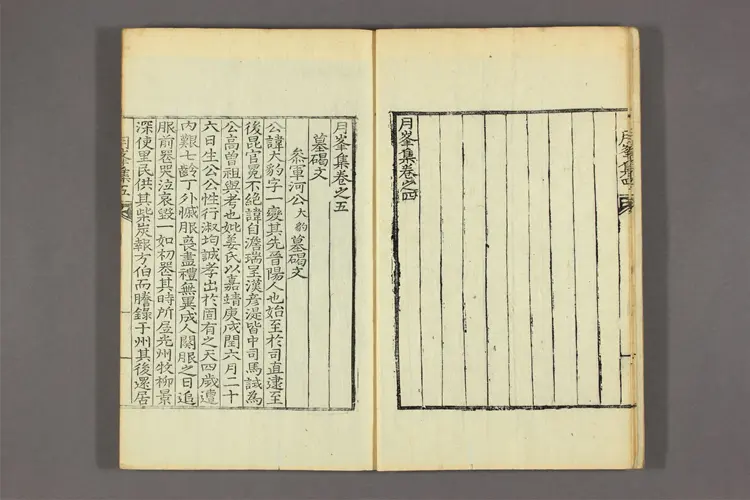 月峯集卷之四
月峯集卷之五
墓碣文
叅軍河公大豹墓碣文
公諱大豹字一變其先晉陽人也始至於司直逮至
後昆官冕不絶諱自澹瑞呈漢彦湜皆中司馬試爲
公高曾祖與考也妣姜氏以嘉靖庚戌閏六月二十
六日生公公性行淑均誠孝出於固有之天四歲遭
內艱七齡丁外慽服喪盡禮無異成人闋服之日追
服前喪哭泣哀毀一如初喪其時所居光州牧柳景
深使里民供其柴炭報方伯而謄錄于州其後還居